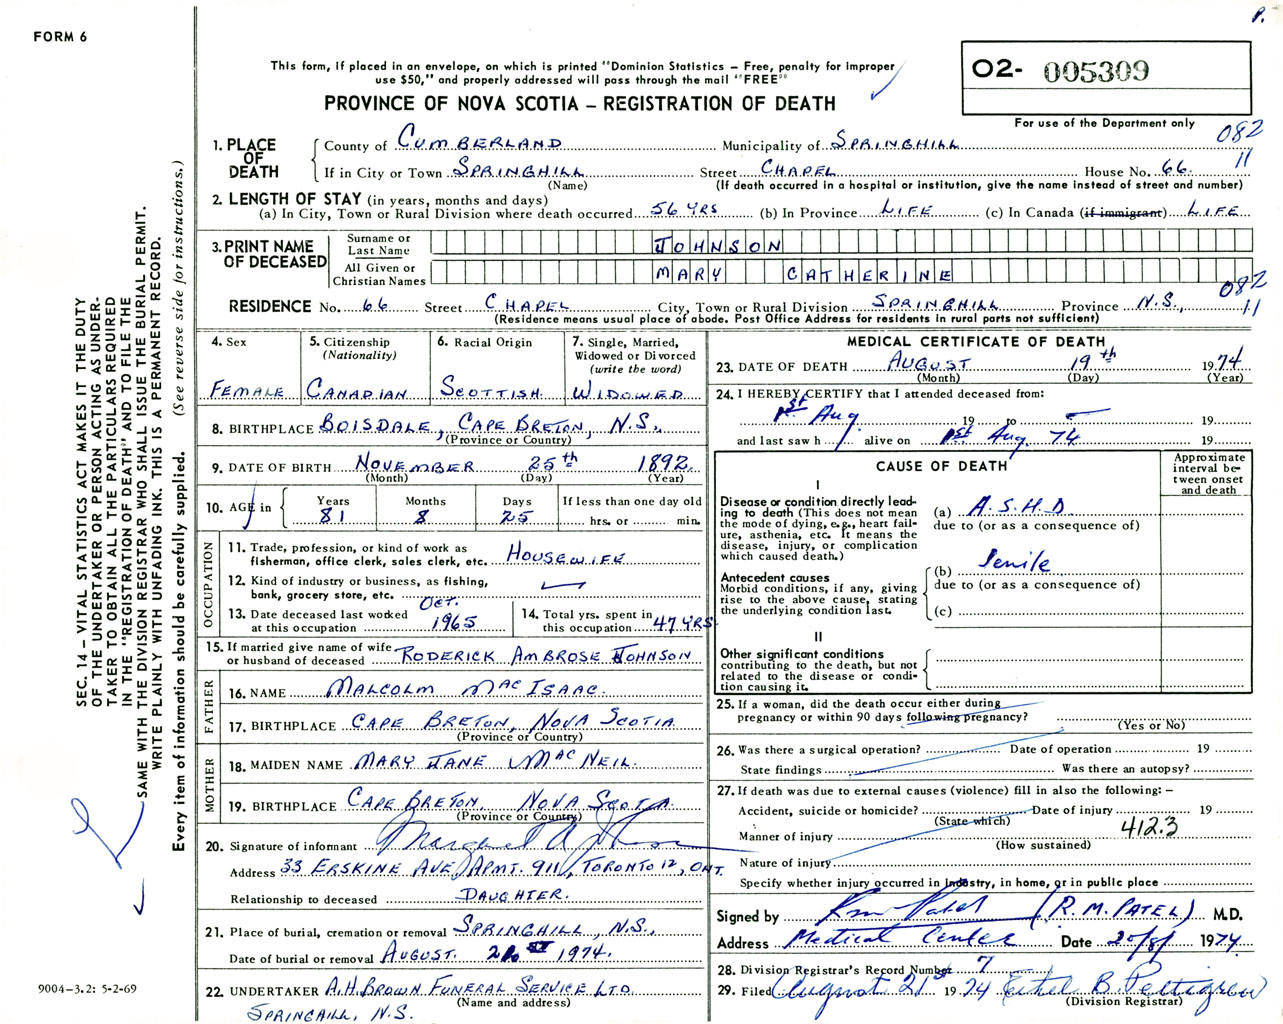 P.
FORM 6
This form, if placed in an envelope, on which is printed "Dominion Statistics – Free, penalty for improper
use $50," and properly addressed will pass through the mail "FREE"
PROVINCE OF NOVA SCOTIA – REGISTRATION OF DEATH
02- 005309
For use of the Department only
082
11
1. PLACE OF DEATH
County of CUMBERLAND Municipality of SPRINGHILL
If in City or Town SPRINGHILL Street CHAPEL House No. 66
(Name) (If death occurred in a hospital or institution, give the name instead of street and number)
2. LENGTH OF STAY (in years, months and days)
(a) In City, Town or Rural Division where death occurred 56 YRS (b) In Province LIFE (c) In Canada (if immigrant) LIFE
3. PRINT NAME OF DECEASED
Surname or Last Name JOHNSON
All Given or Christian Names MARY CATHERINE
082
11
RESIDENCE No. 66 Street CHAPEL City, Town or Rural Division SPRINGHILL Province N.S.,
(Residence means usual place of abode. Post Office Address for residents in rural parts not sufficient)
4. Sex
FEMALE
5. Citizenship
(Nationality)
CANADIAN
6. Racial Origin
SCOTTISH
7. Single, Married,
Widowed or Divorced
(write the word)
WIDOWED
8. BIRTHPLACE BOISDALE, CAPE BRETON, N.S.,
(Province or Country)
9. DATE OF BIRTH NOVEMBER 25th 1892
(Month) (Day) (Year)
10. AGE in Years Months Days If less than one day old
81 8 25 hrs. or min.
OCCUPATION
11. Trade, profession, or kind of work as
fisherman, office clerk, sales clerk, etc. HOUSEWIFE
12. Kind of industry or business, as fishing,
bank, grocery store, etc.
13. Date deceased last worked
at this occupation OCT. 1965
14. Total yrs. spent in
this occupation 47 YRS
15. If married give name of wife
or husband of deceased RODERICK AMBROSE JOHNSON
FATHER
16. NAME MALCOLM MACISAAC.
17. BIRTHPLACE CAPE BRETON, NOVA SCOTIA
(Province or Country)
MOTHER
18. MAIDEN NAME MARY JANE MACNEIL.
19. BIRTHPLACE CAPE BRETON, NOVA SCOTIA.
(Province or Country)
20. Signature of informant Margaret A Johnson
Address 33 ERSKINE AVE, APMT. 911, TORONTO 12, ONT.
Relationship to deceased DAUGHTER.
21. Place of burial, cremation or removal SPRINGHILL, N.S.,
Date of burial or removal AUGUST. 21ST 1974.
22. UNDERTAKER A.H. BROWN FUNERAL SERVICE LTD.
(Name and address)
SPRINGHILL, N.S.
MEDICAL CERTIFICATE OF DEATH
23. DATE OF DEATH AUGUST 19th 1974
(Month) (Day) (Year)
24. I HEREBY CERTIFY that I attended deceased from:
1st Aug 19 to 19
and last saw h alive on 1st Aug. 74 19
CAUSE OF DEATH
Approximate
interval be-
tween onset
and death
I
Disease or condition directly lead-
ing to death (This does not mean
the mode of dying, e.g., heart fail-
ure, asthenia, etc. It means the
disease, injury, or complication
which caused death.)
(a) A.S.H.D.
due to (or as a consequence of)
Antecedent causes
Morbid conditions, if any, giving
rise to the above cause, stating
the underlying condition last.
(b) Senile
due to (or as a consequence of)
(c)
II
Other significant conditions
contributing to the death, but not
related to the disease or condi-
tion causing it.
25. If a woman, did the death occur either during
pregnancy or within 90 days following pregnancy?
(Yes or No)
26. Was there a surgical operation? Date of operation 19
State findings Was there an autopsy?
27. If death was due to external causes (violence) fill in also the following: –
Accident, suicide or homicide? Date of injury 19
(State which)
Manner of injury 412.3
(How sustained)
Nature of injury
Specify whether injury occurred in Industry, in home, or in public place
Signed by (R.M. PATEL) M.D.
Address Medical Center Date 20/8/ 1974.
28. Division Registrar's Record Number 7
29. Filed August 21st 1974 Ethel B. Pettigrew
(Division Registrar)
SEC. 14 – VITAL STATISTICS ACT MAKES IT THE DUTY
OF THE UNDERTAKER OR PERSON ACTING AS UNDER-
TAKER TO OBTAIN ALL THE PARTICULARS REQUIRED
IN THE "REGISTRATION OF DEATH" AND TO FILE THE
SAME WITH THE DIVISION REGISTRAR WHO SHALL ISSUE THE BURIAL PERMIT.
WRITE PLAINLY WITH UNFADING INK. THIS IS A PERMANENT RECORD.
Every item of information should be carefully supplied. (See reverse side for instructions.)
9004-3.2: 5-2-69